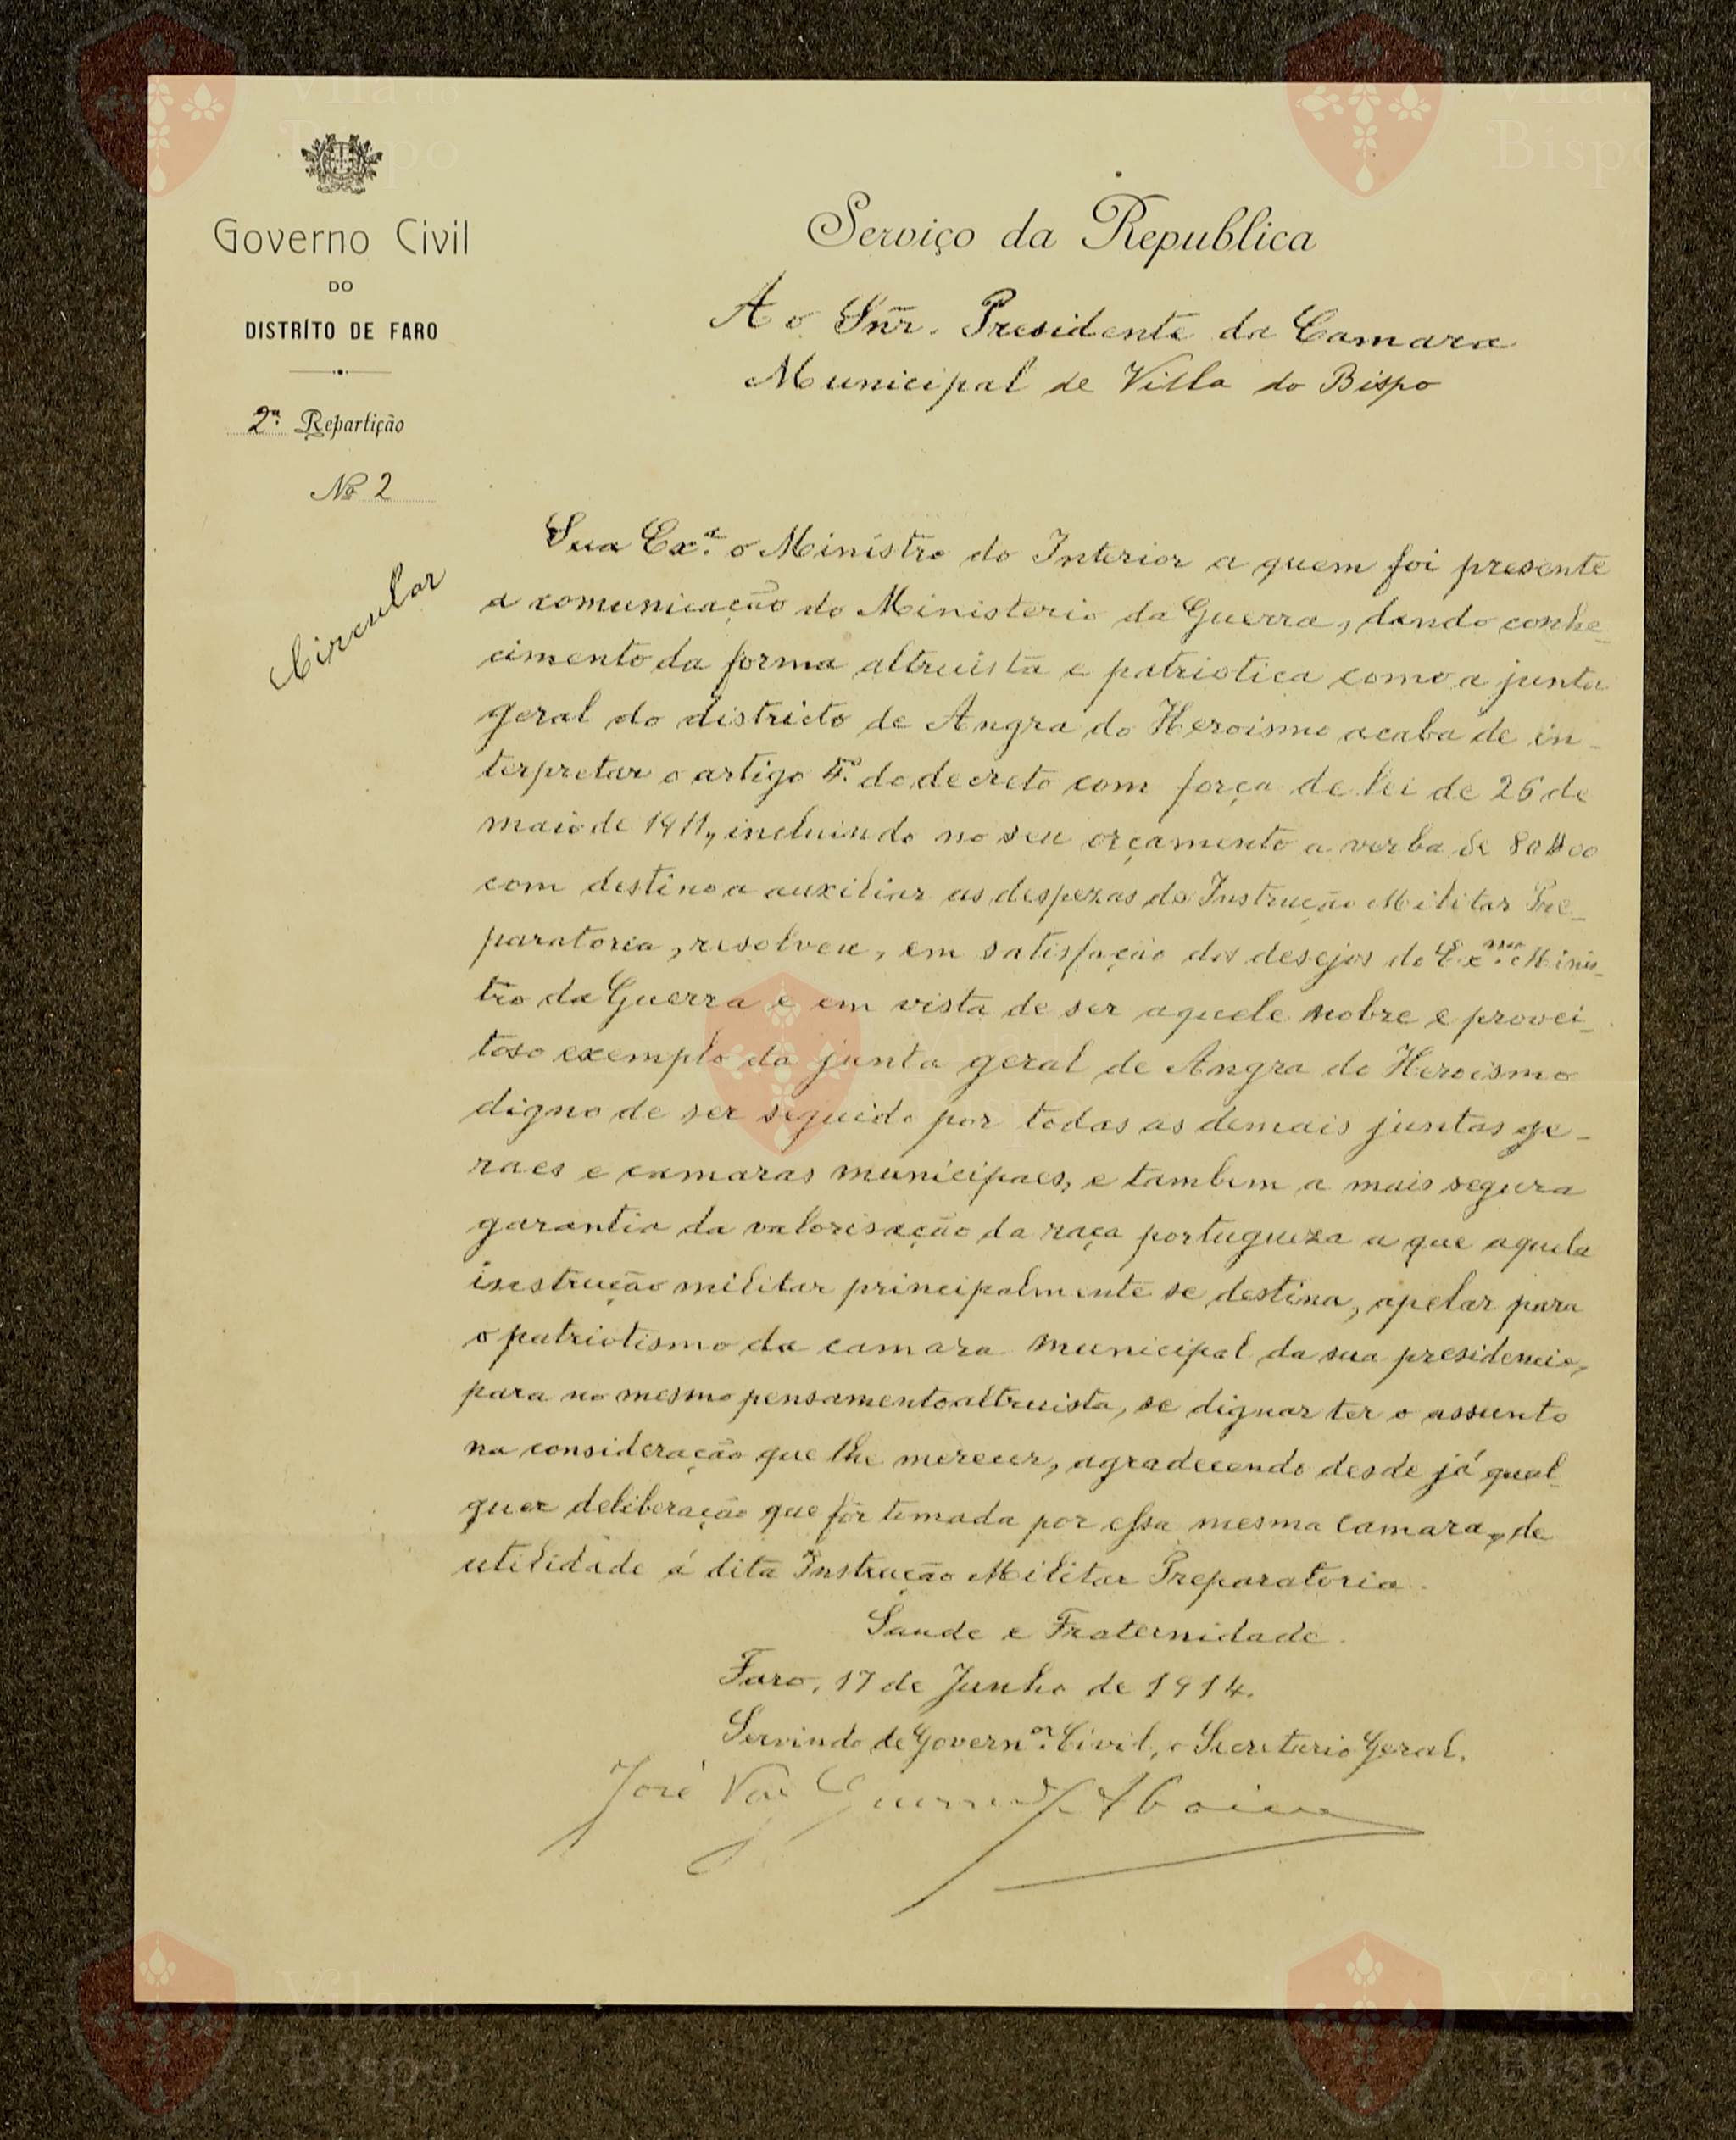 Governo Civil
DO
DISTRÍTO DE FARO
2ª Repartição
Nº 2
Circular
Serviço da Republica
Ao Snr. Presidente da Camara
Municipal de Villa do Bispo
Sua Exª o Ministro do Interior a quem foi presente
a comunicação do Ministerio da Guerra, dando conhe-
cimento da forma altruista e patriotica como a junta
geral do districto de Angra do Heroismo acaba de in-
terpretar o artigo do decreto com força de lei de 26 de
maio de 1911, incluindo no seu orçamento a verba de 80$00
com destino a auxiliar as despezas da Instrução Militar Pre-
paratoria, resolveu, em satisfação dos desejos do Exmo Minis-
tro da Guerra e em vista de ser aquele nobre e provei-
toso exemplo da junta geral de Angra do Heroismo
digno de ser seguido por todas as demais juntas ge-
raes e camaras municipaes, e tambem a mais segura
garantia da valorisação da raça portugueza a que aquela
instrução militar principalmente se destina, apelar para
o patriotismo da camara municipal da sua presidencia,
para no mesmo pensamento altruista, se dignar ter o assunto
na consideração que lhe merecer, agradecendo desde já qual-
quer deliberação que fôr tomada por essa mesma camara, de
utilidade á dita Instrução Militar Preparatoria.
Saude e Fraternidade.
Faro, 17 de Junho de 1914.
Servindo de Governor Civil, o Secretario Geral,
José Vaz
Vila do
Bispo
Vila do
Bispo
Bispo
Vila do
Bispo
Vila do
Bispo